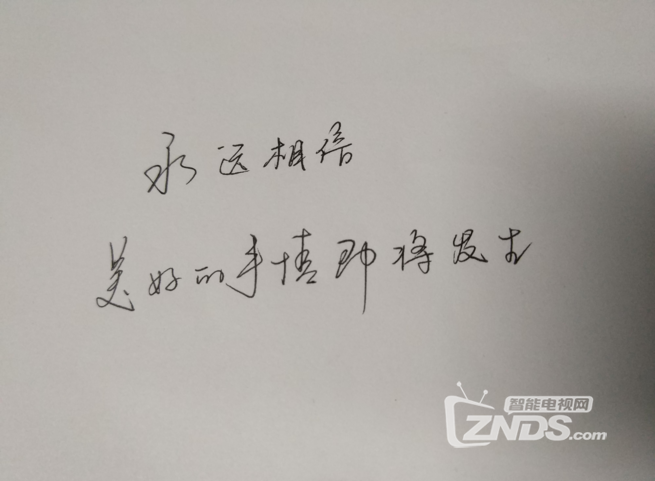 永远相信
美好的事情即将发生
智能电视网
ZNDS.com